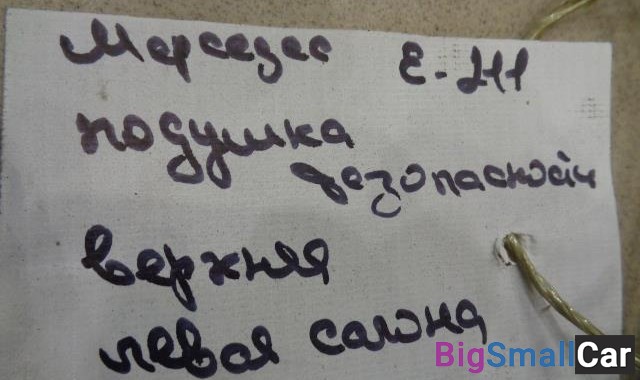 Мерседес Е-211
подушка
безопасности
верхняя
левая салона
BigSmallCar